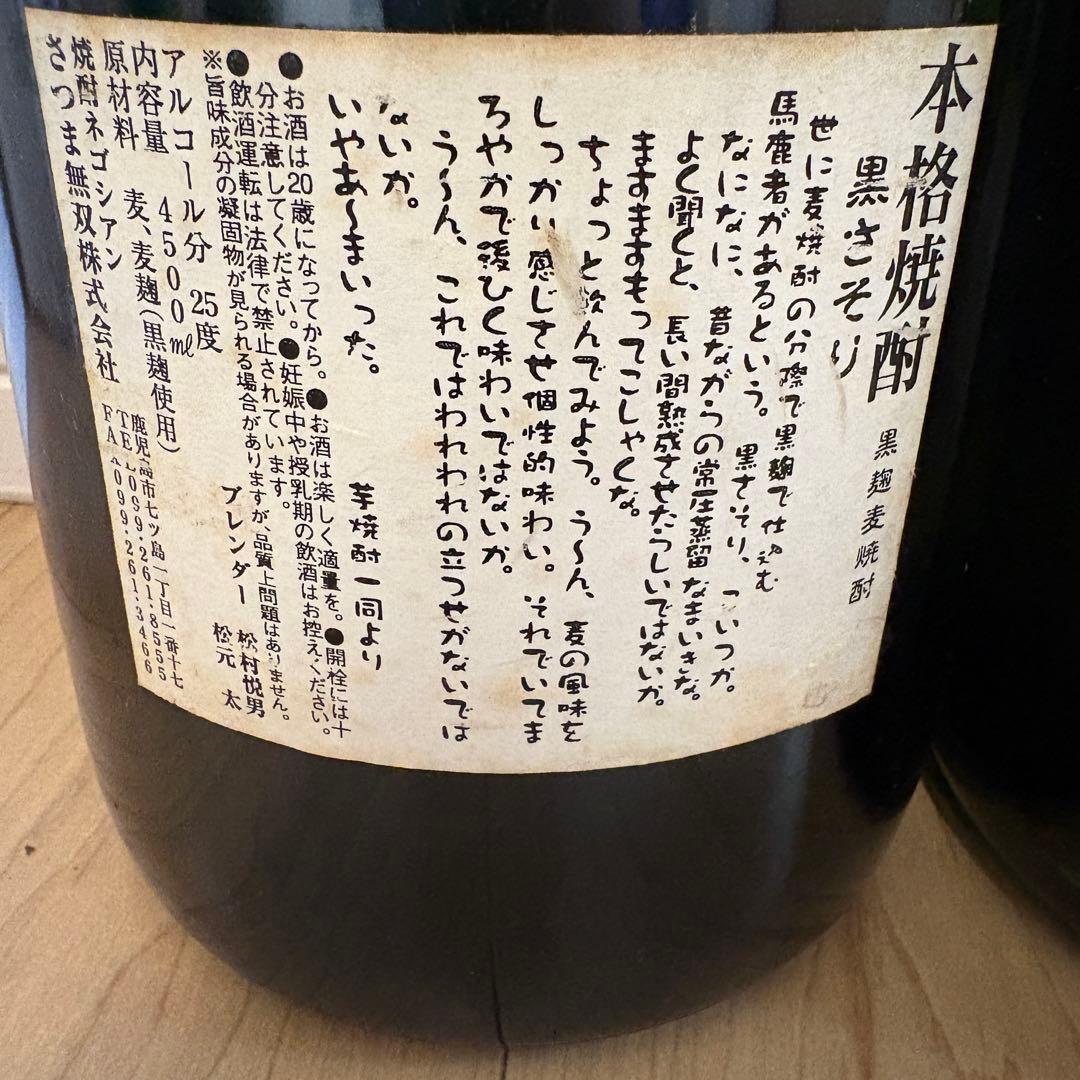 本格焼酎
黒麹麦焼酎
黒さそり
世に麦焼酎の分際で黒麹で仕込む
馬鹿者があるという。黒さそり、こいつか。
なになに、昔ながらの常圧蒸留なまいきな。
よく聞くと、長い間熟成させたらしいではないか。
ますますもってこしゃくな。
ちょっと飲んでみよう。う〜ん、麦の風味を
しっかい感じさせ個性的味わい。それでいてま
ろやかで後ひく味わいではないか。
う〜ん、これではわれわれの立つせがないでは
ないか。
いやあ〜まいった。
芋焼酎一同より
●お酒は20歳になってから。●お酒は楽しく適量を。●開栓には十
分注意してください。●妊娠中や授乳期の飲酒はお控えください。
●飲酒運転は法律で禁止されています。
※旨味成分の凝固物が見られる場合がありますが、品質上問題はありません。
アルコール分 25度
内容量 4500㎖
原材料 麦、麦麹(黒麹使用)
ブレンダー 松村悦男
松元 太
焼酎ネゴシアン
さつま無双株式会社
鹿児島市七ツ島一丁目一番十七
TEL099.261.8555
FAX099.261.3466